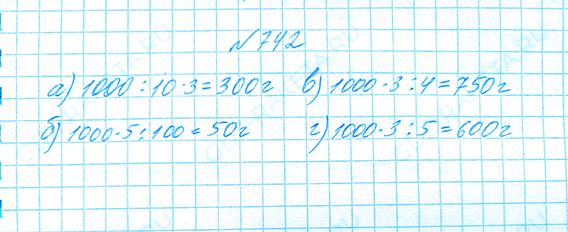 №742
а) 1000 : 10 · 3 = 300г в) 1000 · 3 : 4 = 750г
б) 1000 · 5 : 100 = 50г г) 1000 · 3 : 5 = 600г